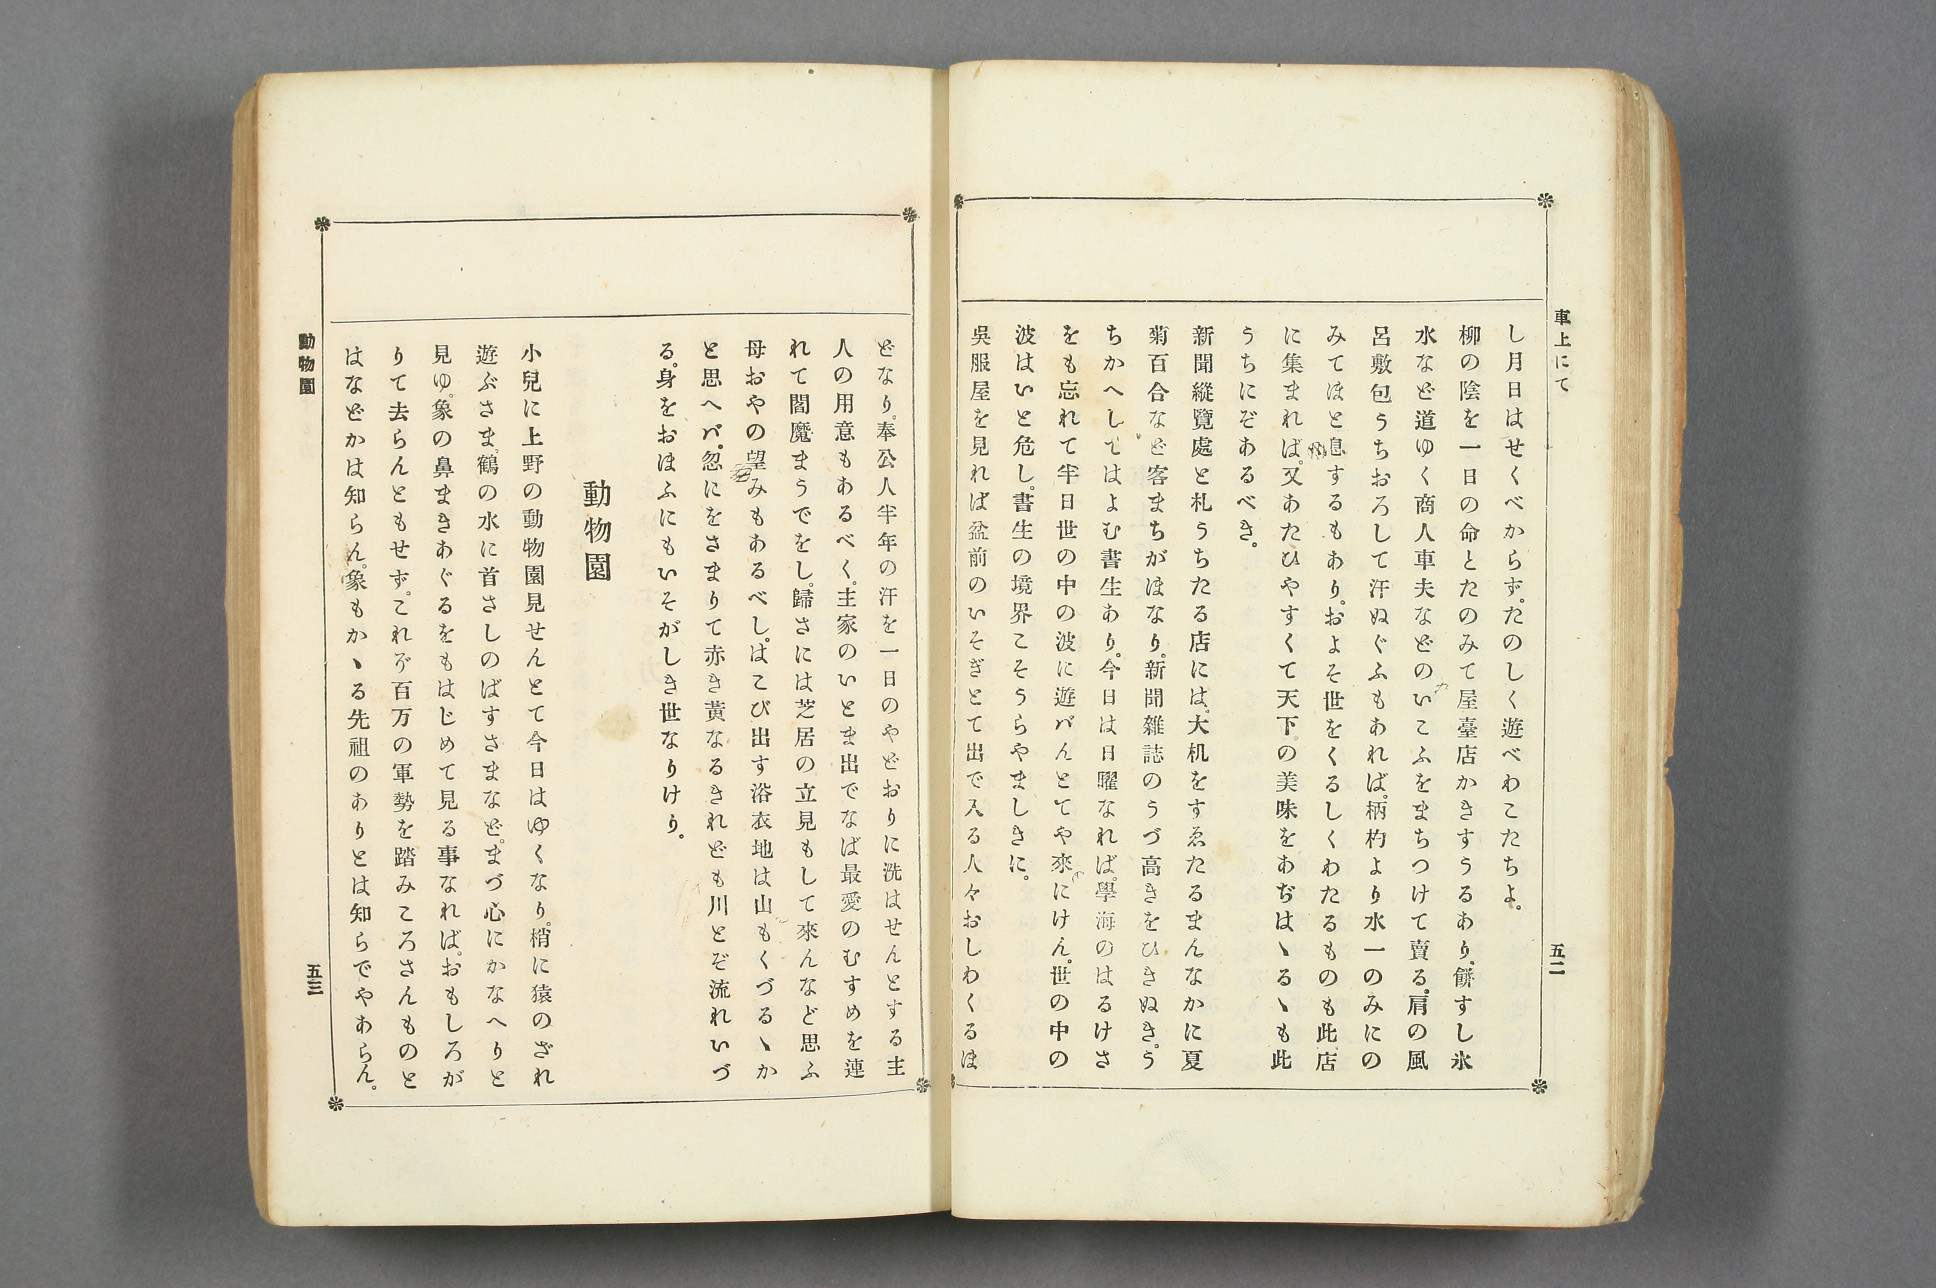 車上にて
五二
し月日はせくべからず。たのしく遊べわこたちよ。
柳の陰を一日の命とたのみて屋臺店かきすうるあり。餠すし氷
水など道ゆく商人車夫などのいこふをまちつけて賣る。肩の風
呂敷包うちおろして汗ぬぐふもあれば。柄杓より水一のみにの
みてほと息するもあり。およそ世をくるしくわたるものも此店
に集まれば。又あたひやすくて天下の美味をあぢはゝるゝも此
うちにぞあるべき。
新聞縱覽處と札うちたる店には。大机をすゑたるまんなかに夏
菊百合など客まちがほなり。新聞雜誌のうづ高きをひきぬき。う
ちかへしてはよむ書生あり。今日は日曜なれば。學海のはるけさ
をも忘れて半日世の中の波に遊バんとてや來にけん。世の中の
波はいと危し。書生の境界こそうらやましきに。
呉服屋を見れば盆前のいそぎとて出で入る人々おしわくるほ
どなり。奉公人半年の汗を一日のやどおりに洗はせんとする主
人の用意もあるべく。主家のいとま出でなば最愛のむすめを連
れて閻魔まうでをし。歸さには芝居の立見もして來んなど思ふ
母おやの望みもあるべし。はこび出す浴衣地は山もくづるゝか
と思へバ。忽にをさまりて赤き黄なるきれども川とぞ流れいづ
る。身をおほふにもいそがしき世なりけり。
動物園
小兒に上野の動物園見せんとて今日はゆくなり。梢に猿のざれ
遊ぶさま。鶴の水に首さしのばすさまなど。まづ心にかなへりと
見ゆ。象の鼻まきあぐるをもはじめて見る事なれば。おもしろが
りて去らんともせず。これぞ百万の軍勢を踏みころさんものと
はなどかは知らん。象もかゝる先祖のありとは知らでやあらん。
動物園
五三